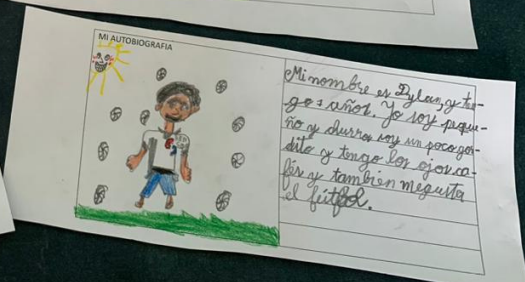 MI AUTOBIOGRAFIA
Mi nombre es Dylan, y ten-
go 8 años. Yo soy peque-
ño y churros soy un poco gor-
dito y tengo los ojos ca-
fés y tambien me gusta
el fútbol.